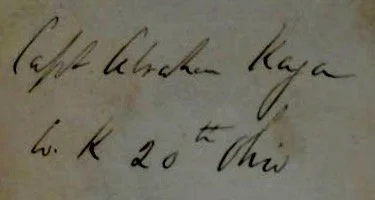 Capt Abraham Kaga
Co. K 20th Ohio